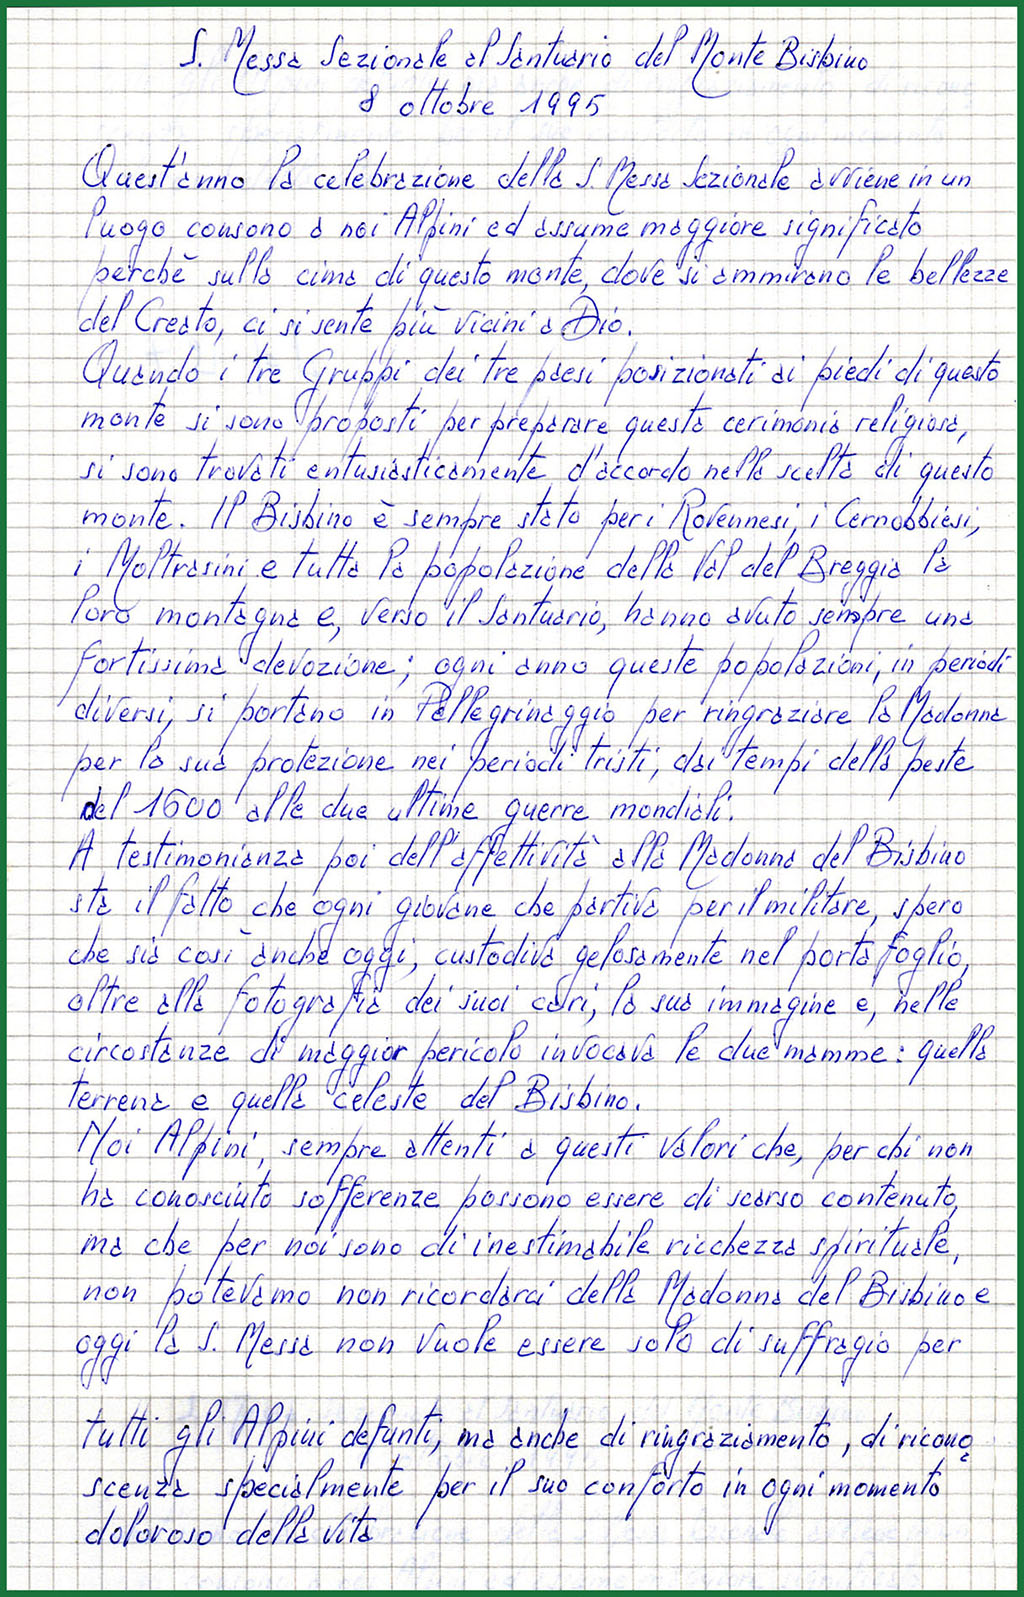 S. Messa Sezionale al Santuario del Monte Bisbino
8 ottobre 1995
Quest'anno la celebrazione della S. Messa Sezionale avviene in un
luogo consono a noi Alpini ed assume maggiore significato
perchè sulla cima di questo monte, dove si ammirano le bellezze
del Creato, ci si sente più vicini a Dio.
Quando i tre Gruppi dei tre paesi posizionati ai piedi di questo
monte si sono proposti per preparare questa cerimonia religiosa,
si sono trovati entusiasticamente d'accordo nella scelta di questo
monte. Il Bisbino è sempre stato per i Rovennesi, i Cernobbiesi,
i Moltrasini e tutta la popolazione della Val del Breggia la
loro montagna e, verso il Santuario, hanno avuto sempre una
fortissima devozione; ogni anno queste popolazioni, in periodi
diversi, si portano in Pellegrinaggio per ringraziare la Madonna
per la sua protezione nei periodi tristi, dai tempi della peste
del 1600 alle due ultime guerre mondiali.
A testimonianza poi dell'affettività alla Madonna del Bisbino
sta il fatto che ogni giovane che partiva per il militare, spero
che sia così anche oggi, custodiva gelosamente nel portafoglio,
oltre alla fotografia dei suoi cari, la sua immagine e, nelle
circostanze di maggior pericolo invocava le due mamme: quella
terrena e quella celeste del Bisbino.
Noi Alpini, sempre attenti a questi valori che, per chi non
ha conosciuto sofferenze possono essere di scarso contenuto,
ma che per noi sono di inestimabile ricchezza spirituale,
non potevamo non ricordarci della Madonna del Bisbino e
oggi la S. Messa non vuole essere solo di suffragio per
tutti gli Alpini defunti, ma anche di ringraziamento, di ricono
scenza specialmente per il suo conforto in ogni momento
doloroso della vita